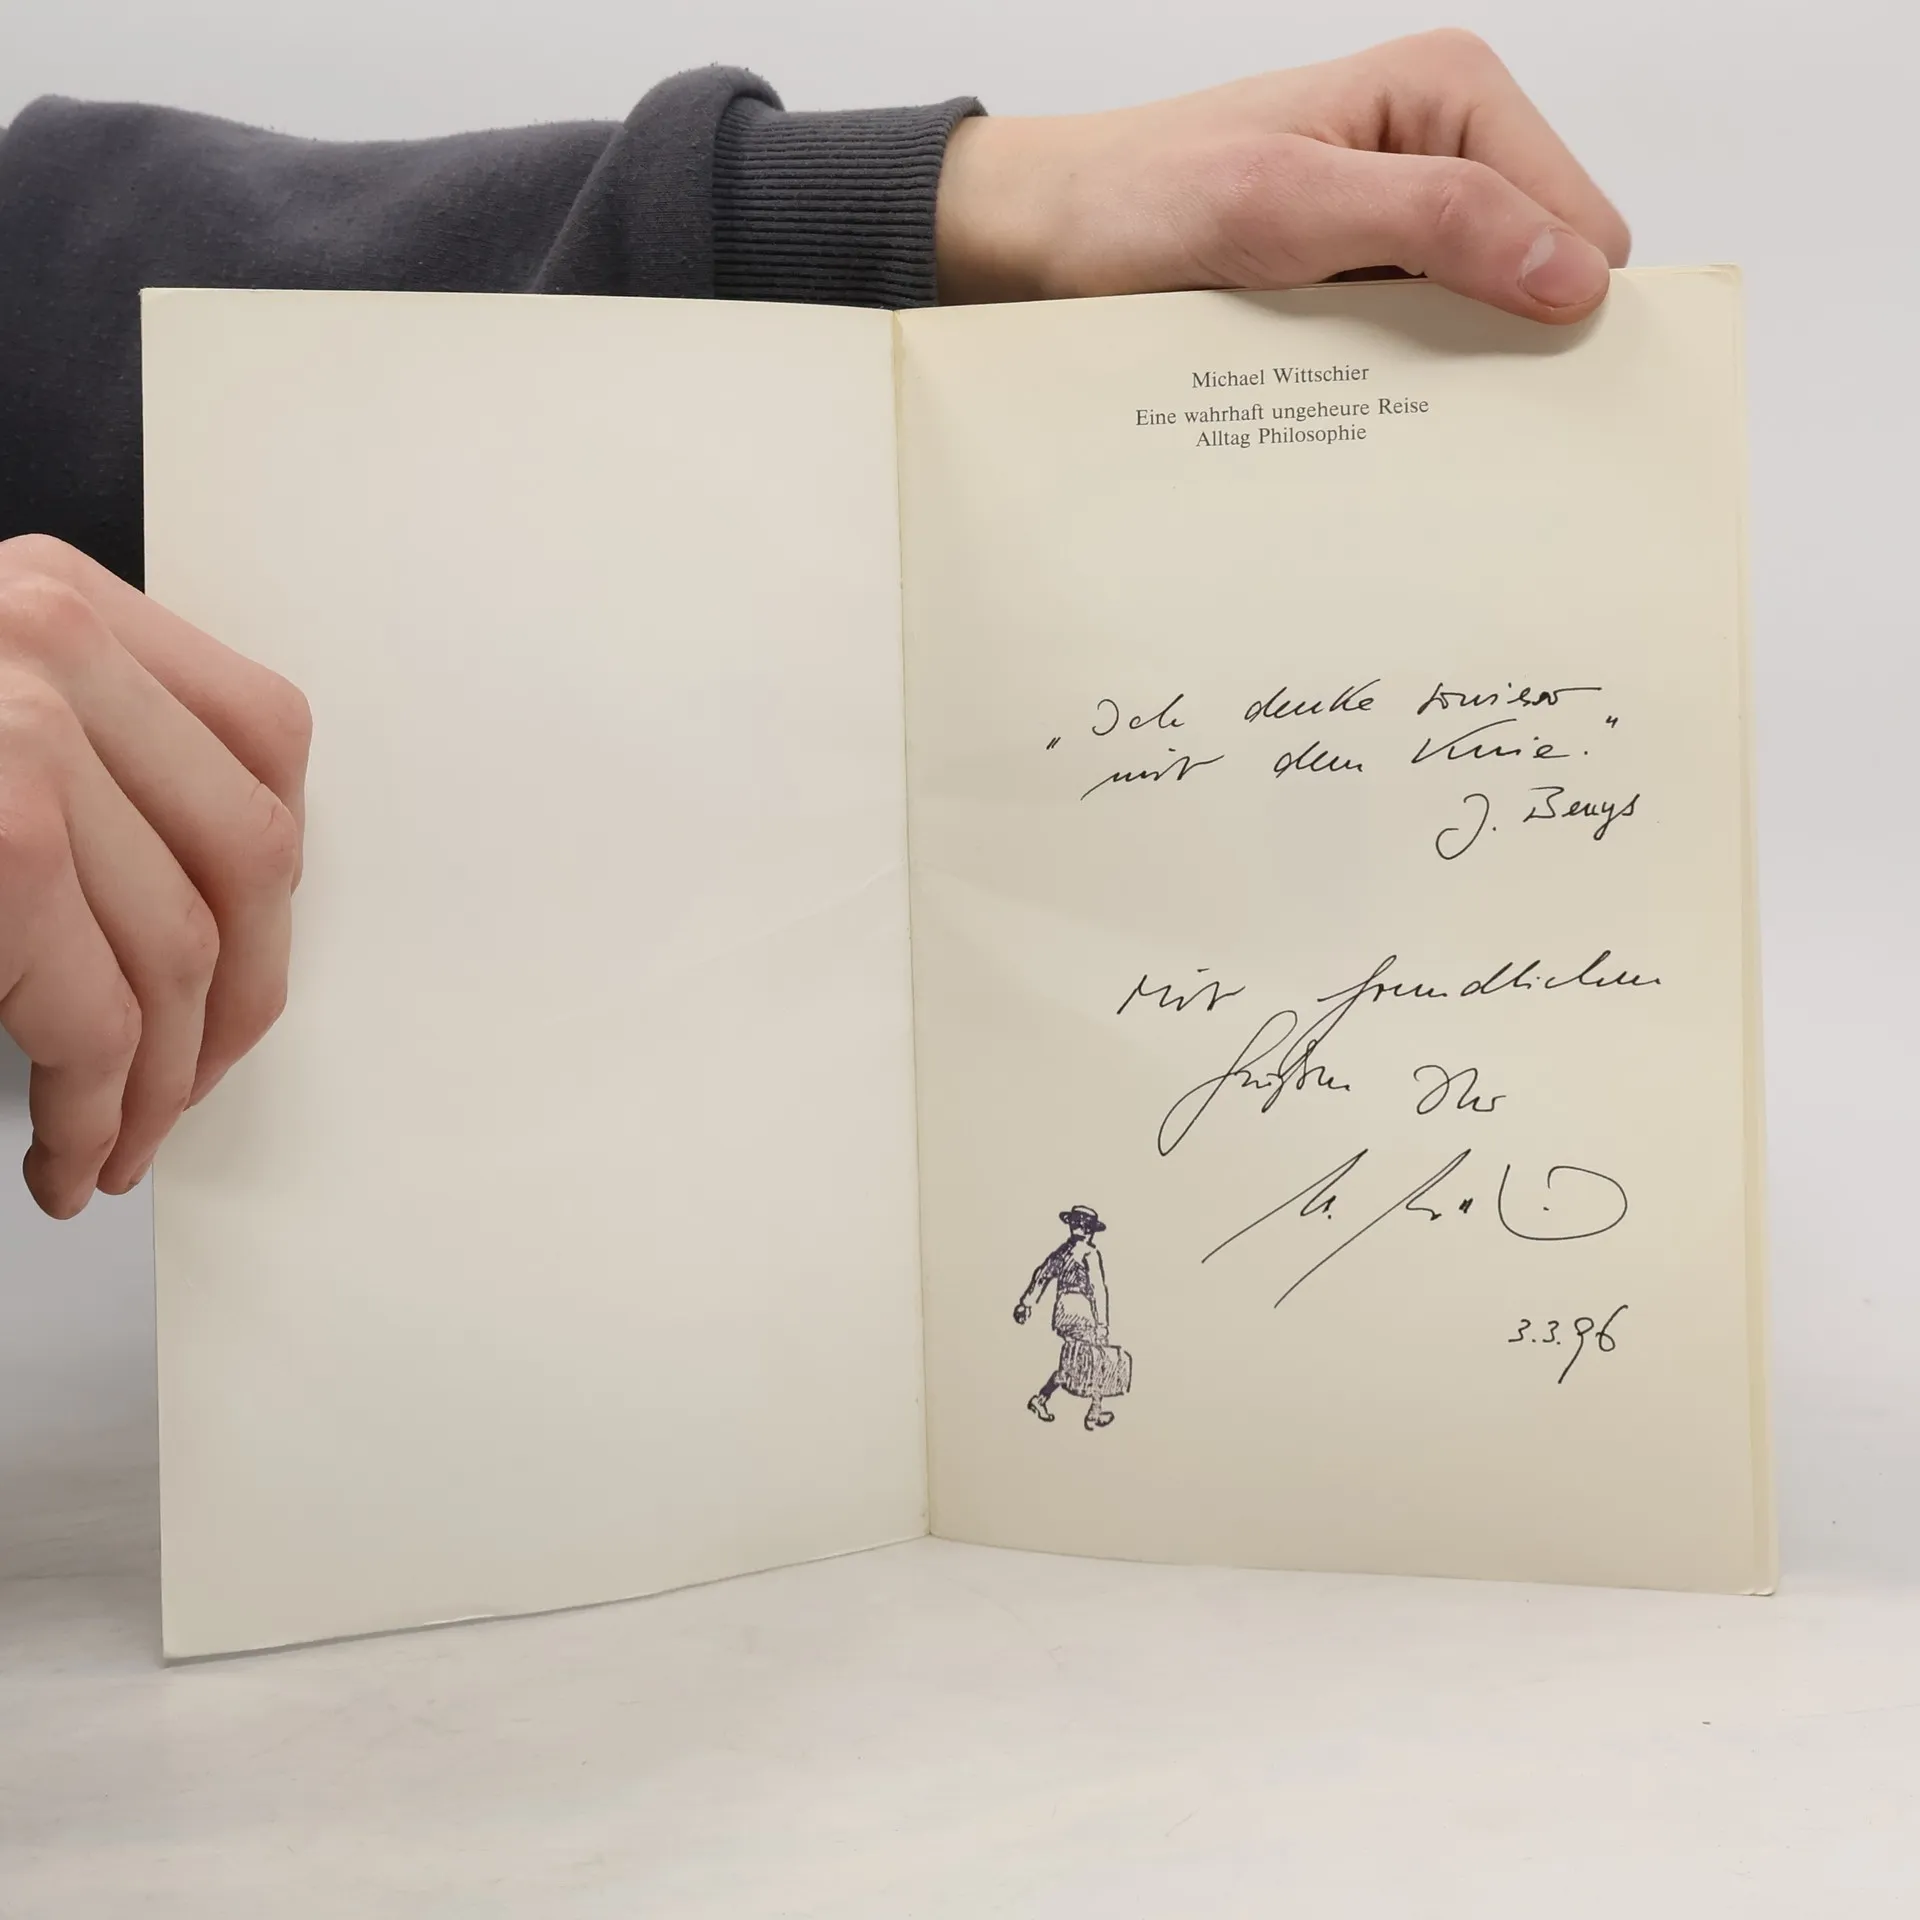 Michael Wittschier
Eine wahrhaft ungeheure Reise
Alltag Philosophie
„Ich denke sowieso
mit dem Knie."
J. Beuys
Mit freundlichen
Grüßen Ihr
3.3.96